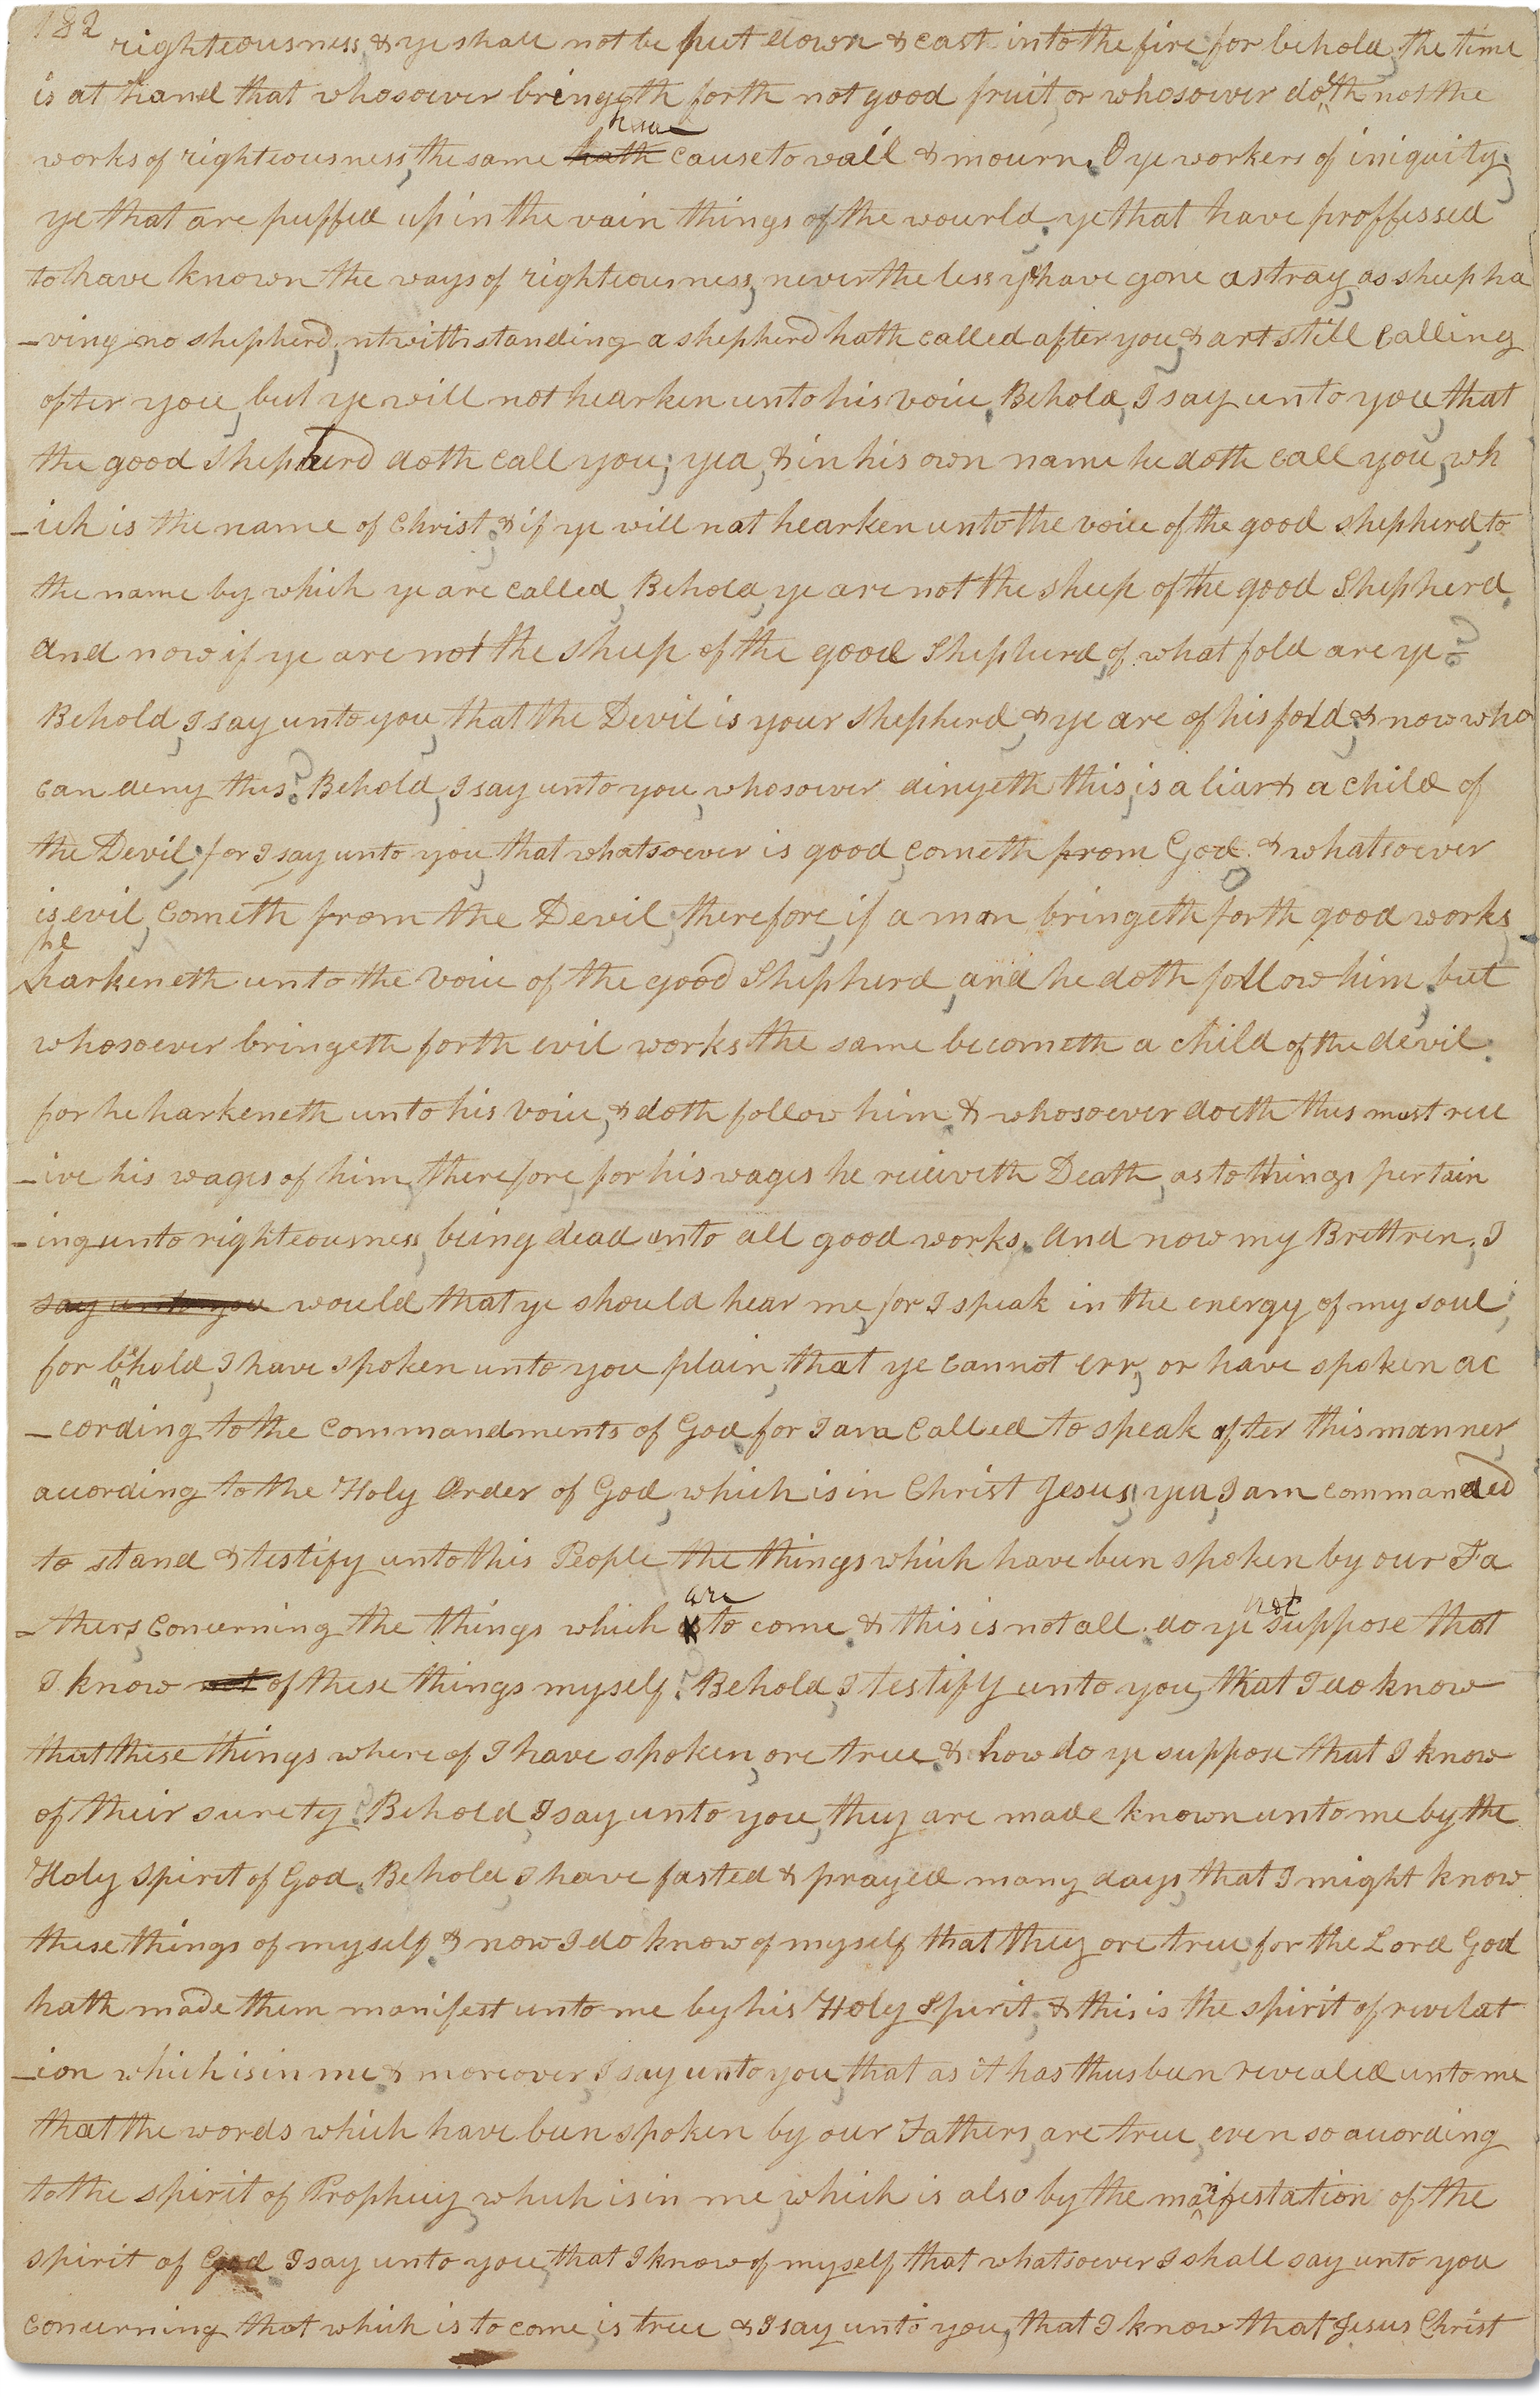 182
righteousness, & ye shall not be put down & cast into the fire for behold, the time
is at hand that whosoever bringeth forth not good fruit, or whosoever doeth not the
works of righteousness, the same hath have cause to wail & mourn. O ye workers of iniquity;
ye that are puffed up in the vain things of the wourld. ye that have proffessed
to have known the ways of righteousness, nevertheless ye have gone astray, as sheep ha
-ving no shepherd, ntwithstanding a shepherd hath called after you, & art still calling
after you, but ye will not hearken unto his voice. Behold, I say unto you, that
the good shepherd doth call you; yea, & in his own name he doth call you, wh
-ich is the name of Christ; & if ye will not hearken unto the voice of the good shepherd, to
the name by which ye are called, Behold, ye are not the sheep of the good Shepherd.
And now if ye are not the sheep of the good Shepherd, of what fold are ye?
Behold, I say unto you, that the Devil is your shepherd, & ye are of his fold; & now who
can deny this? Behold, I say unto you, whosoever dinyeth this, is a liar & a child of
the Devil; for I say unto you, that whatsoever is good, cometh from God. & whatsoever
is evil, cometh from the Devil, therefore, if a man bringeth forth good works,
he
harkeneth unto the voice of the good Shepherd, and he doth follow him. but
whosoever bringeth forth evil works the same becometh a child of the devil.
for he harkeneth unto his voice, & doth follow him. & whosoever doeth this must rece
-ive his wages of him, therefore, for his wages he receiveth Death, as to things pertain
-ing unto righteousness, being dead unto all good works. And now my Brethren, I
say unto you would that ye should hear me, for I speak in the energy of my soul;
for behold, I have spoken unto you plain, that ye cannot err, or have spoken ac
-cording to the commandments of God, for I am called to speak after this manner,
according to the Holy Order of God, which is in Christ Jesus; yea, I am commanded
to stand & testify unto this People the things which have been spoken by our Fa
-thers, concerning the things which is are to come. & this is not all. do ye not suppose that
I know not of these things myself? Behold, I testify unto you, that I do know
that these things where of I have spoken, are true. & how do ye suppose that I know
of their surety? Behold, I say unto you, they are made known unto me by the
Holy Spirit of God. Behold, I have fasted & prayed many days, that I might know
these things of myself. & now I do know of myself that they are true, for the Lord God
hath made them manifest unto me by his Holy Spirit, & this is the spirit of revelat
-ion which is in me. & moreover, I say unto you, that as it has thus been revealed unto me
that the words which have been spoken by our Fathers, are true, even so according
to the spirit of Prophecy, which is in me, which is also by the manifestation of the
spirit of God I say unto you, that I know of myself that whatsoever I shall say unto you
concerning that which is to come, is true & I say unto you, that I know that Jesus Christ